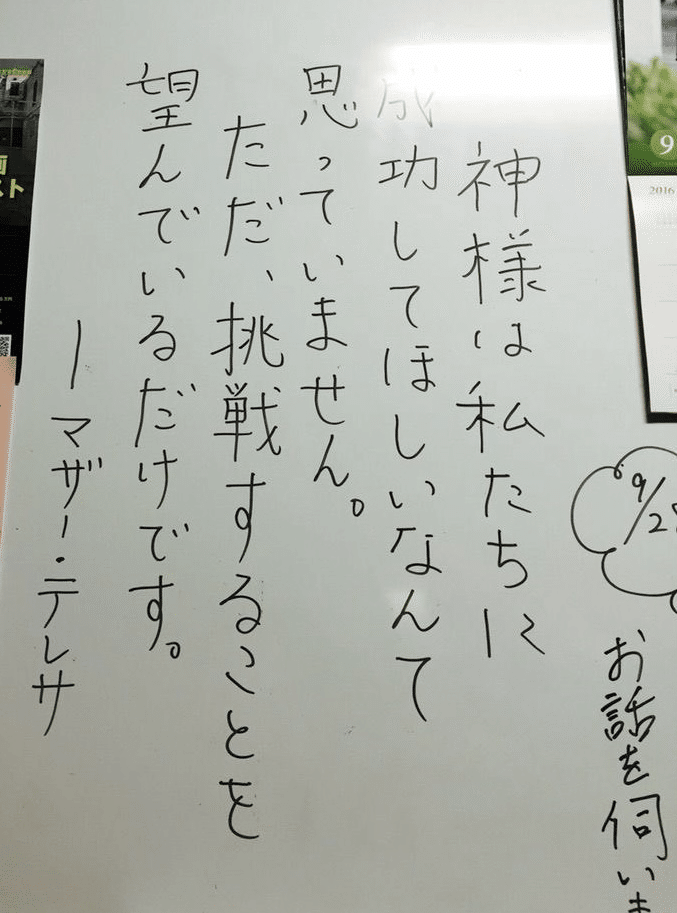 9
2016
9/2
お話を伺いま
神様は私たちに
成功してほしいなんて
思っていません。
ただ、挑戦することを
望んでいるだけです。
ーマザー・テレサ
スト